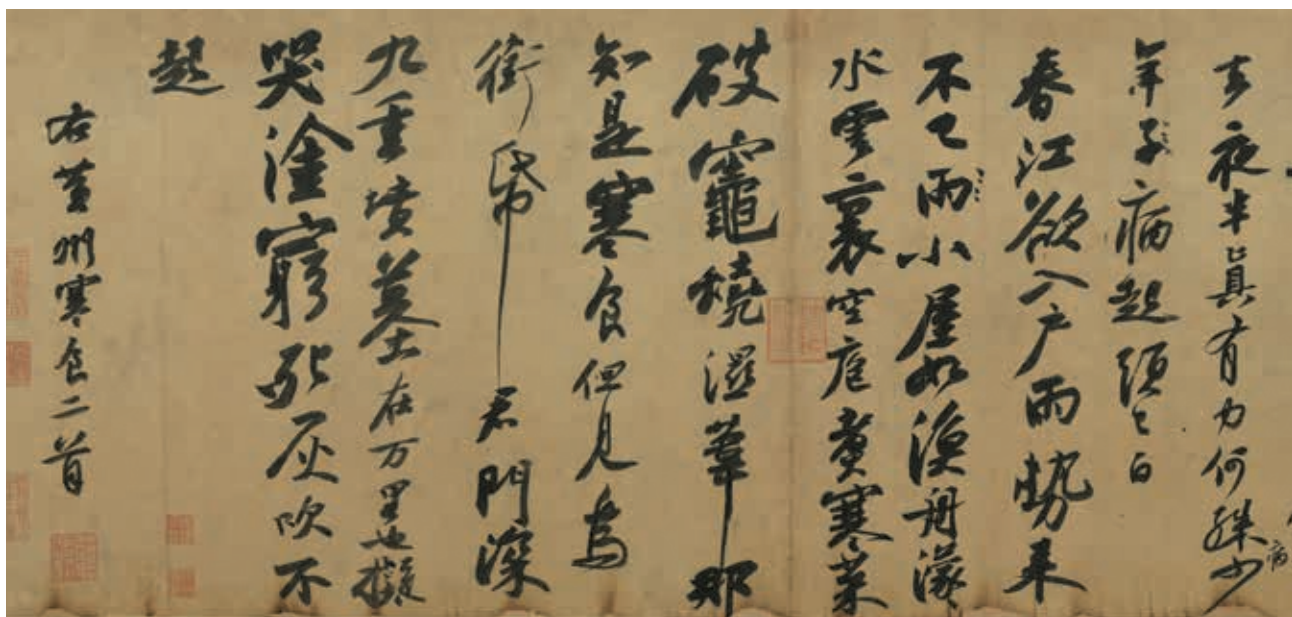 去夜半眞有力何殊病少
年子病起頭已白
春江欲入戶雨勢來
不已雨小屋如漁舟濛
水雲裏空庖煮寒菜
破竈燒濕葦那
知是寒食但見烏
銜帋君門深
九重墳墓在万里也擬
哭塗窮死灰吹不
起
右黃州寒食二首